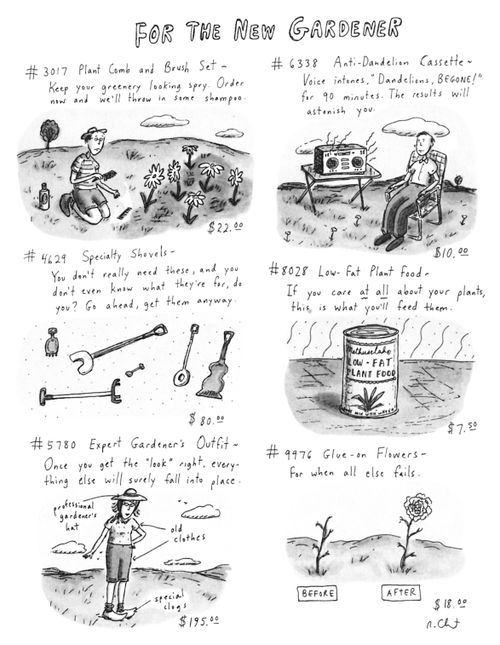 FOR THE NEW GARDENER
# 3017 Plant Comb and Brush Set~
Keep your greenery looking spry. Order
now and we'll throw in some shampoo.
$22.00
# 6338 Anti-Dandelion Cassette~
Voice intones, "Dandelions, BEGONE!"
for 90 minutes. The results will
astonish you.
$10.00
# 4629 Specialty Shovels~
You don't really need these, and you
don't even know what they're for, do
you? Go ahead, get them anyway.
$80.00
#8028 Low-Fat Plant Food~
If you care at all about your plants,
this is what you'll feed them.
Methuselah
LOW-FAT
PLANT FOOD
$7.50
#5780 Expert Gardener's Outfit~
Once you get the "look" right, every-
thing else will surely fall into place.
professional
gardener's
hat
old
clothes
special
clogs
$195.00
# 9976 Glue-on Flowers~
For when all else fails.
BEFORE
AFTER
$18.00